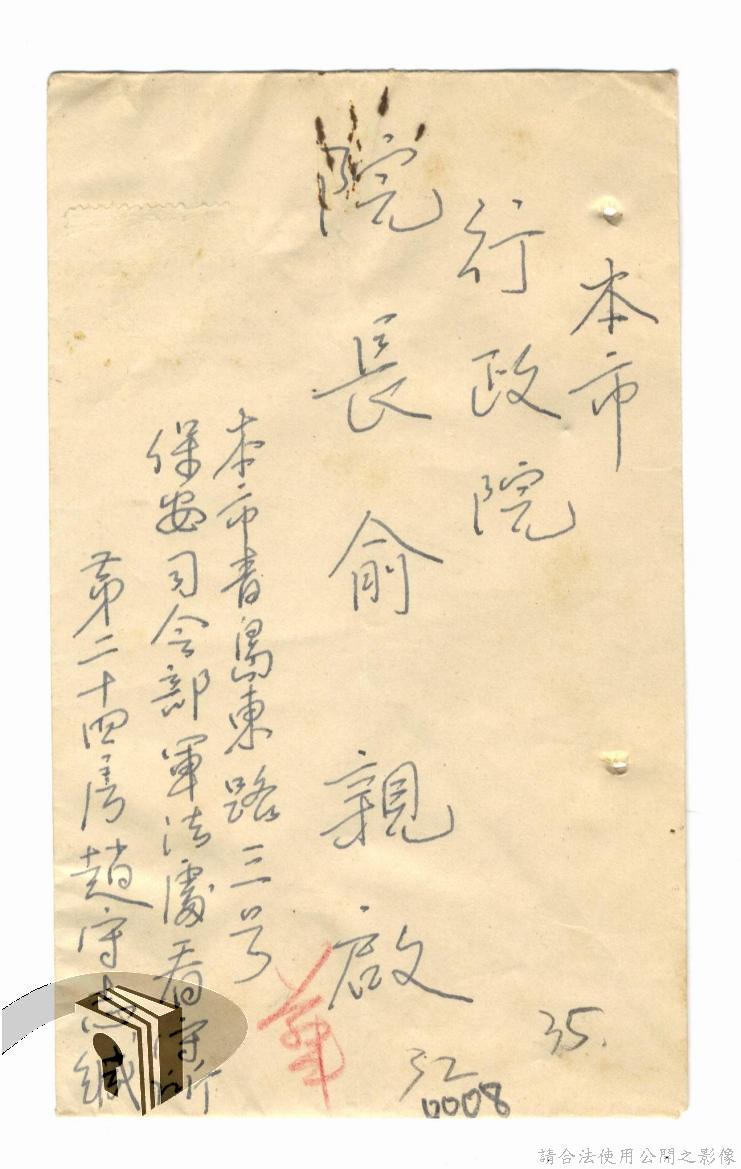 本市
行政院
院長俞親啟
本市青島東路三号
保安司令部軍法處看守所
第二十四房趙守志緘
35.
32
0008
請合法使用公開之影像